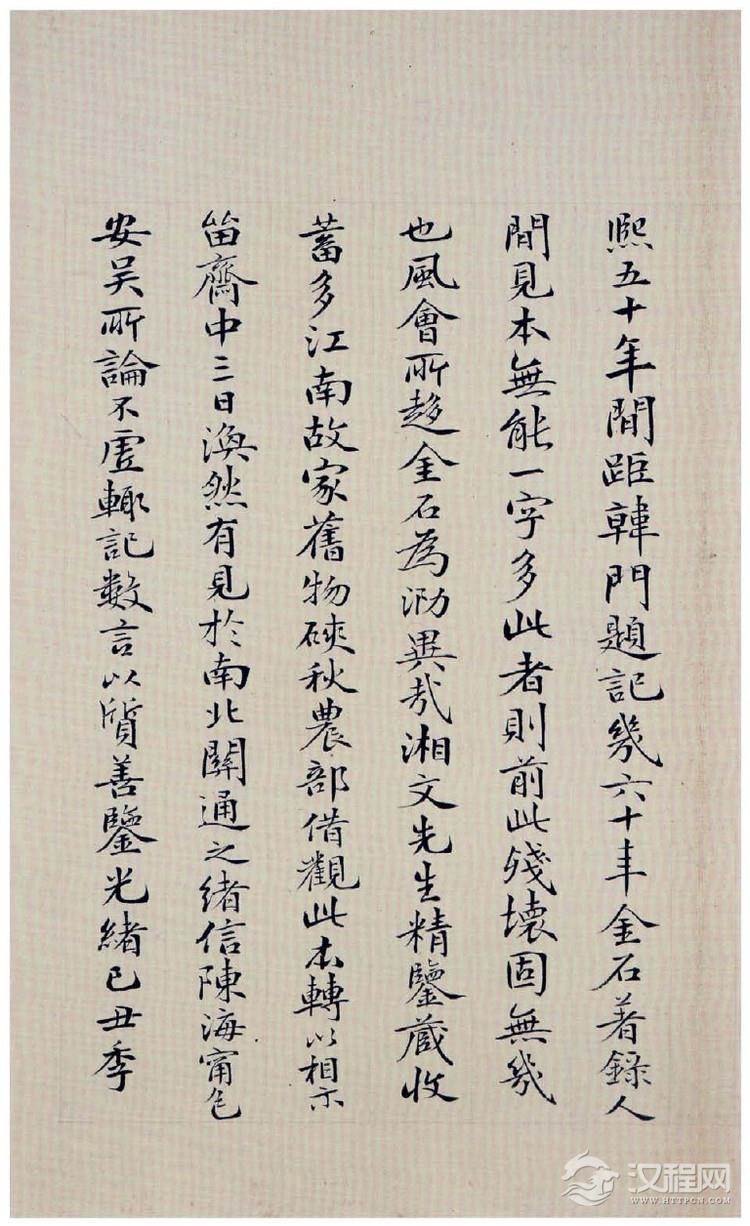 熙五十年間距韓門題記幾六十年金石著錄人
間見本無能一字多此者則前此殘壞固無幾
也風會所趍金石為泐異㢤湘文先生精鑒藏收
蓄多江南故家舊物硤秋農部借觀此本轉以相示
留齋中三日渙然有見於南北關通之緒信陳海甯包
安吴所論不虛輙記數言以質善鑒光緒己丑季
汉程网
WWW.HTTPCN.COM